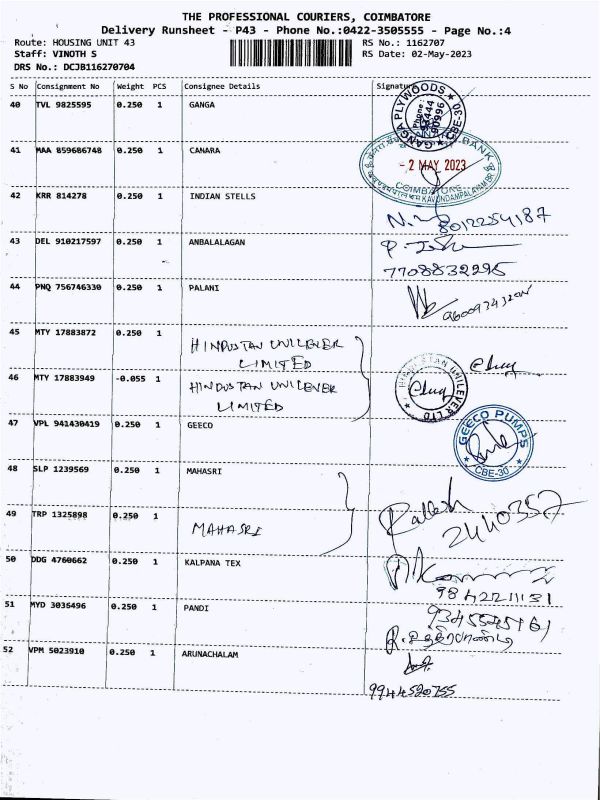 THE PROFESSIONAL COURIERS, COIMBATORE
Delivery Runsheet - P43 - Phone No.:0422-3505555 - Page No.:4
Route: HOUSING UNIT 43 RS No.: 1162707
Staff: VINOTH S RS Date: 02-May-2023
DRS No.: DCJB116270704
S No Consignment No Weight PCS Consignee Details Signature
40 TVL 9825595 0.250 1 GANGA
GANGA PLYWOODS CBE-30 Phone :
41 MAA 859686748 0.250 1 CANARA
BANK
- 2 MAY 2023
COIMBATORE
KAVUNDAMPALAYAM
42 KRR 814278 0.250 1 INDIAN STELLS
8012254187
43 DEL 910217597 0.250 1 ANBALALAGAN
7708832295
44 PNQ 756746330 0.250 1 PALANI
45 MTY 17883872 0.250 1 HINDUSTAN UNILEVER
LIMITED
46 MTY 17883949 -0.055 1 HINDUSTAN UNILEVER
LIMITED
HINDUSTAN UNILEVER LTD
47 VPL 941430419 0.250 1 GEECO
GEECO PUMPS
CBE-30
48 SLP 1239569 0.250 1 MAHASRI
49 TRP 1325898 0.250 1 MAHASRI
2440357
50 DDG 4760662 0.250 1 KALPANA TEX
51 MYD 3036496 0.250 1 PANDI
52 VPM 5023910 0.250 1 ARUNACHALAM
9944520755